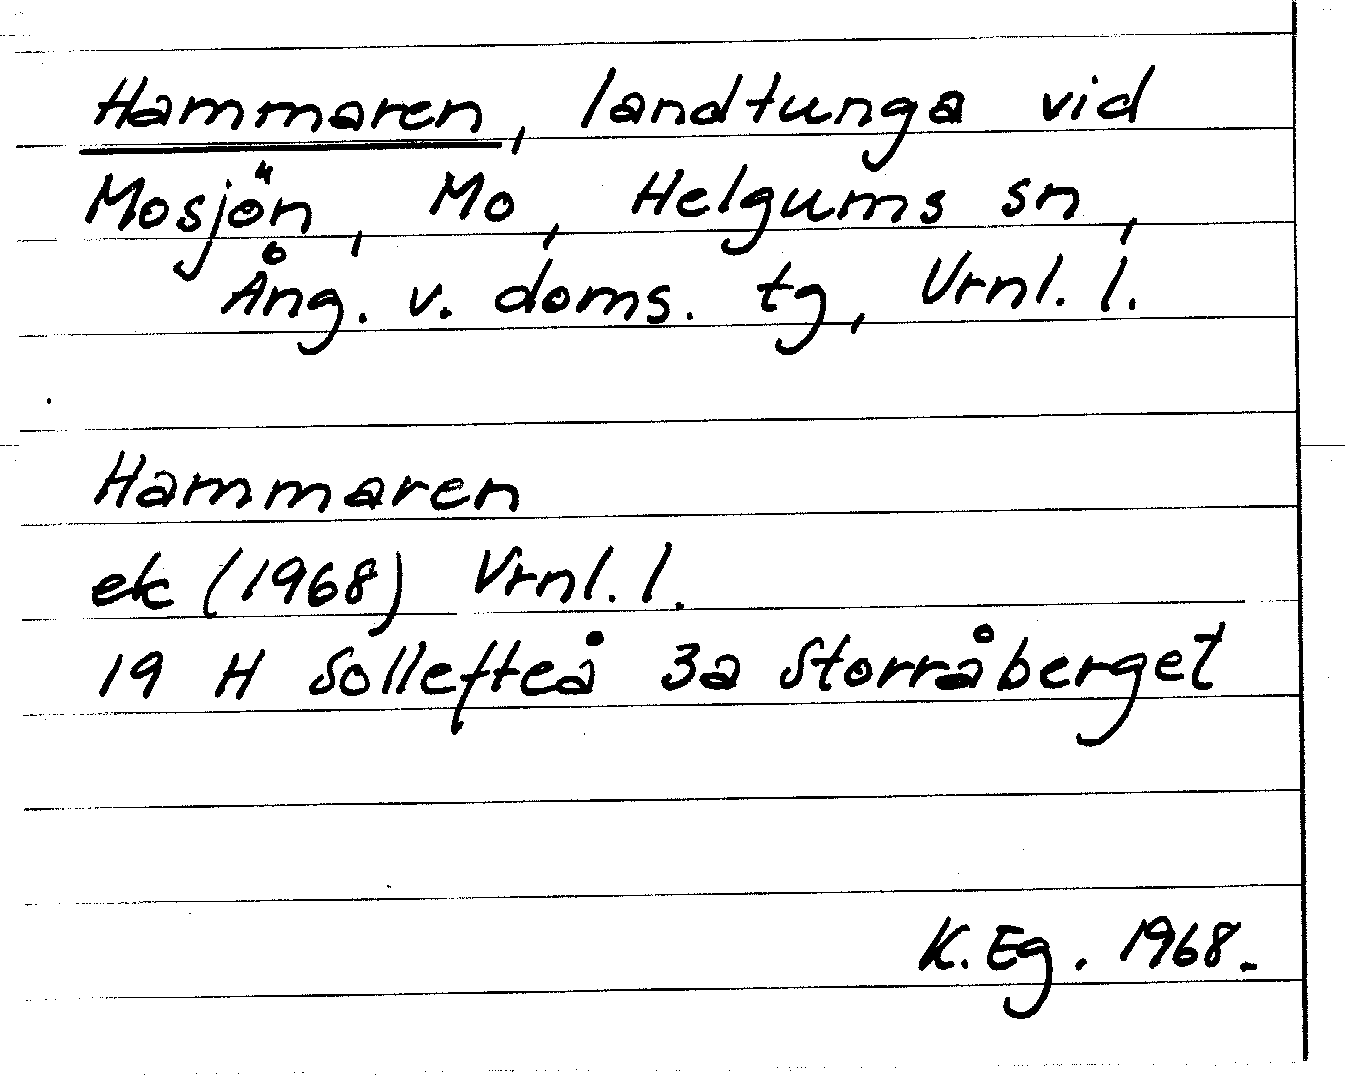 Hammaren, landtunga vid
Mosjön, Mo, Helgums sn,
Ång. v. doms. tg, Vrnl. l.
Hammaren
ek (1968) Vrnl. l.
19 H Sollefteå 3a Storråberget
K. Eg. 1968.